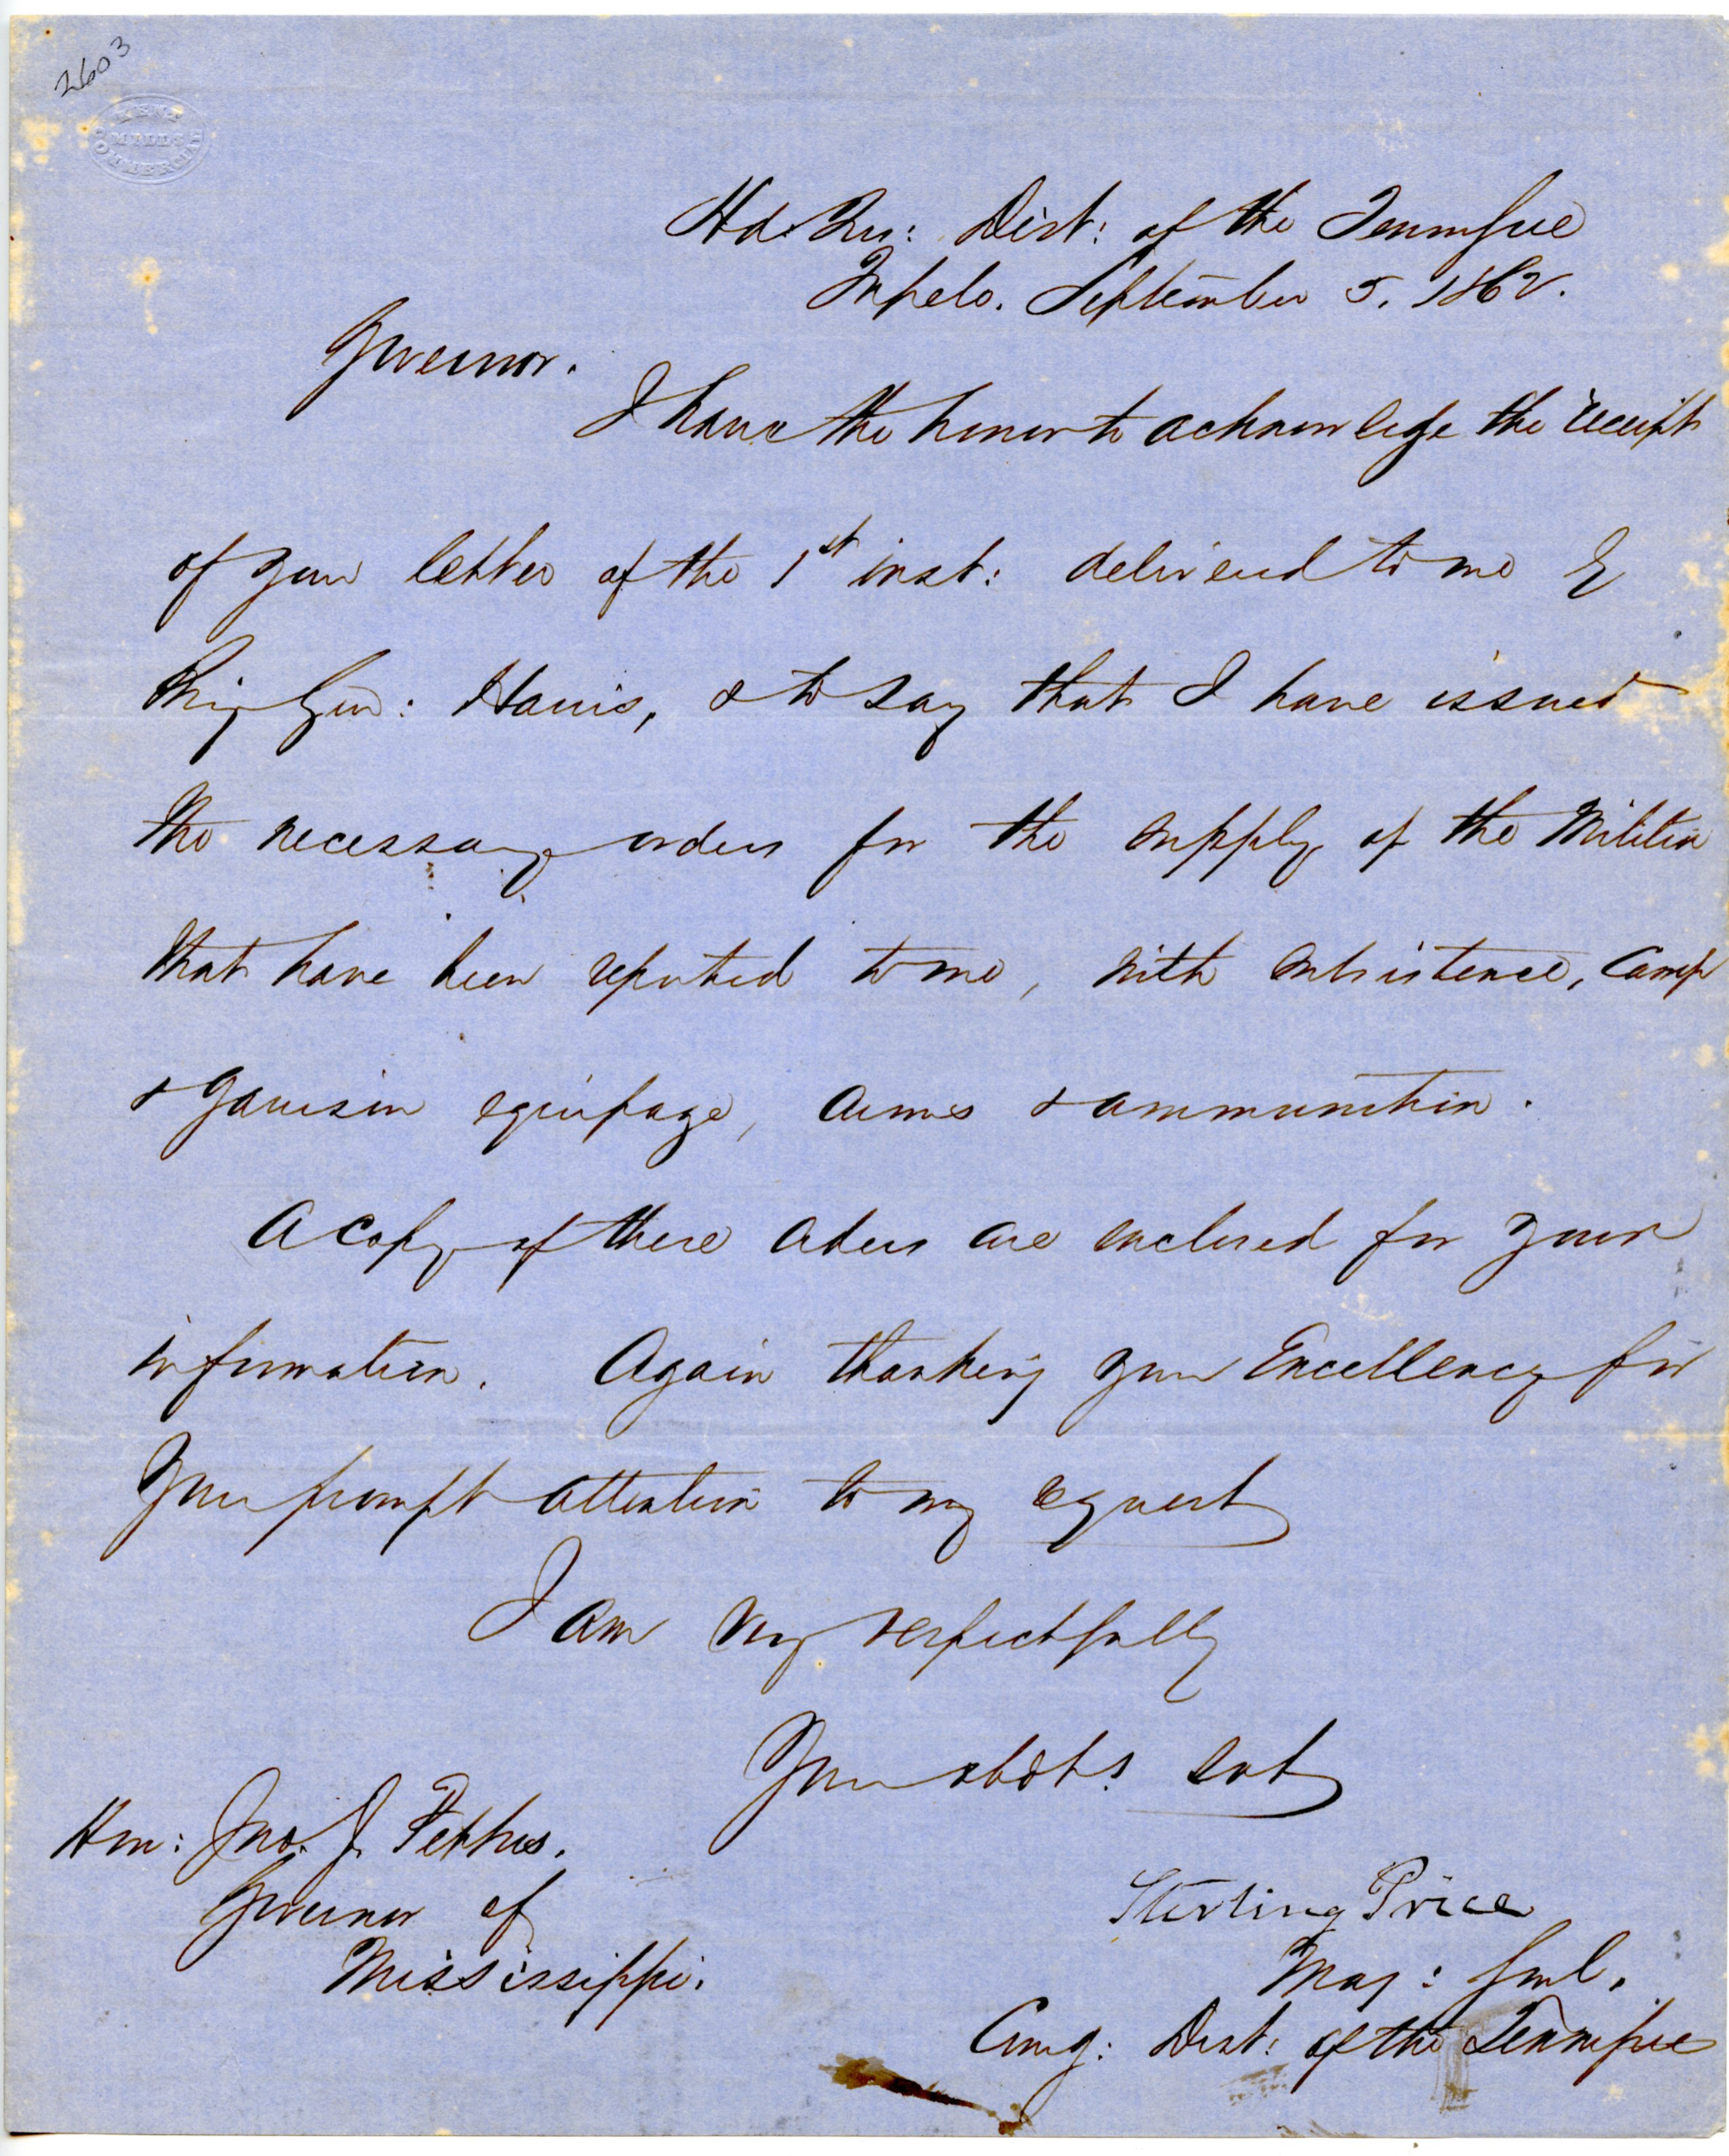 2603
MILLS
COMMERCIAL
Hd. Qrs: Dist: of the Tennessee
Tupelo. September 5. 1862.
Governor.
I have the honor to acknowledge the receipt
of your letter of the 1st inst: delivered to me by
Brig Gen: Harris, & to say that I have issued
the necessary orders for the supply of the Militia
that have been reported to me, with subsistence, Camp
& Garrison equipage, arms & ammunition.
A copy of these orders are enclosed for your
information. Again thanking your Excellency for
your prompt attention to my request
I am very respectfully
Your obdt. svt
Hon: Jno. J. Pettus.
Governor of
Mississippi.
Sterling Price
Maj: Genl.
Comg: Dist: of the Tennessee